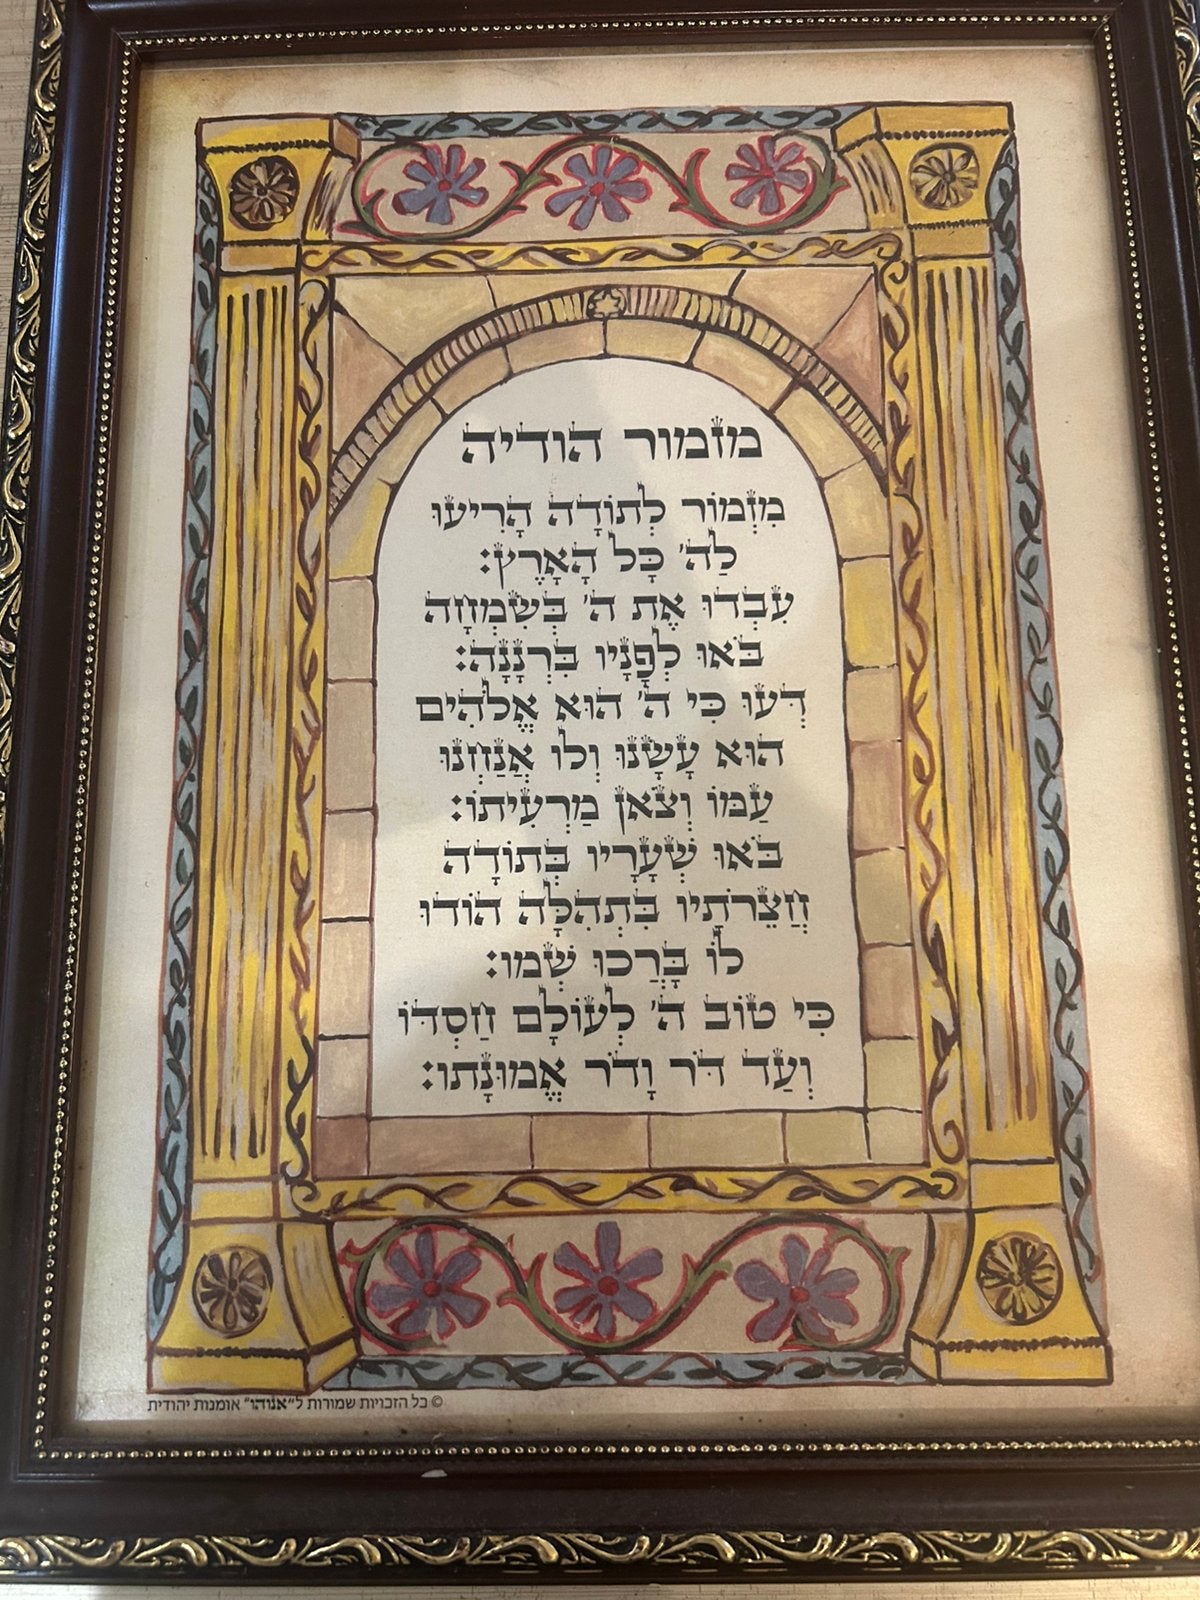 מזמור הודיה
מִזְמוֹר לְתוֹדָה הָרִיעוּ
לַה' כָּל הָאָרֶץ:
עִבְדוּ אֶת ה' בְּשִׂמְחָה
בֹּאוּ לְפָנָיו בִּרְנָנָה:
דְּעוּ כִּי ה' הוּא אֱלֹהִים
הוּא עָשָׂנוּ וְלוֹ אֲנַחְנוּ
עַמּוֹ וְצֹאן מַרְעִיתוֹ:
בֹּאוּ שְׁעָרָיו בְּתוֹדָה
חֲצֵרֹתָיו בִּתְהִלָּה הוֹדוּ
לוֹ בָּרֲכוּ שְׁמוֹ:
כִּי טוֹב ה' לְעוֹלָם חַסְדּוֹ
וְעַד דֹּר וָדֹר אֱמוּנָתוֹ:
© כל הזכויות שמורות ל"אנוהו" אומנות יהודית